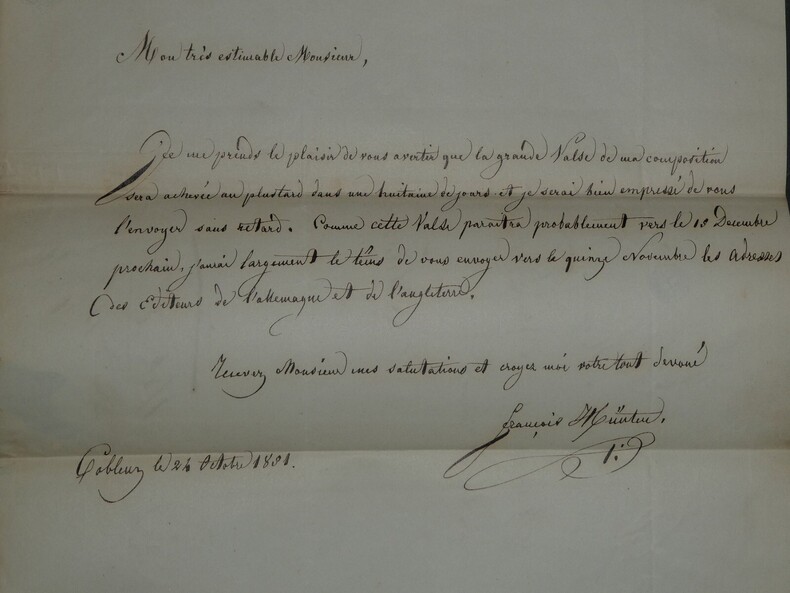 Mon très estimable Monsieur,
Je me prends le plaisir de vous avertir que la grande Valse de ma composition
sera achevée au plustard dans une huitaine de jours et je serai bien empressé de vous
l'envoyer sans retard. Comme cette Valse paraitra probablement vers le 15 Decembre
prochain, j'aurai largement le tems de vous envoyer vers le quinze Novembre les Adresses
des Editeurs de l'allemagne et de l'angleterre.
Recevez Monsieur mes salutations et croyez moi votre tout devoué
François Hünten.
Coblenz le 24 Octobre